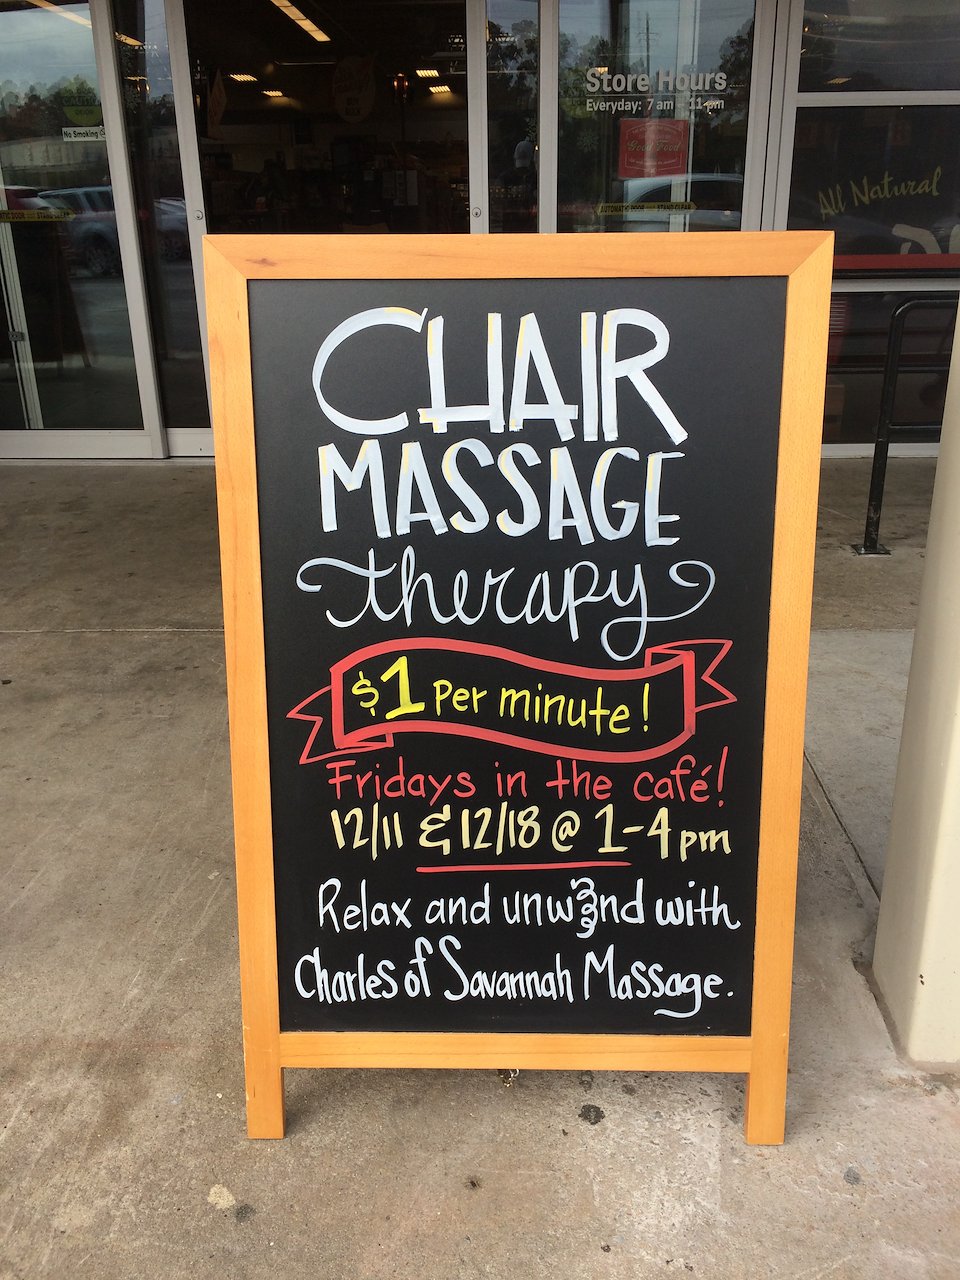 Store Hours
Everyday: 7 am - 11 pm
No Smoking
Good Food
All Natural
AUTOMATIC DOOR STAND CLEAR
CHAIR
MASSAGE
therapy
$1 per minute!
Fridays in the café!
12/11 & 12/18 @ 1-4pm
Relax and unwind with
Charles of Savannah Massage.